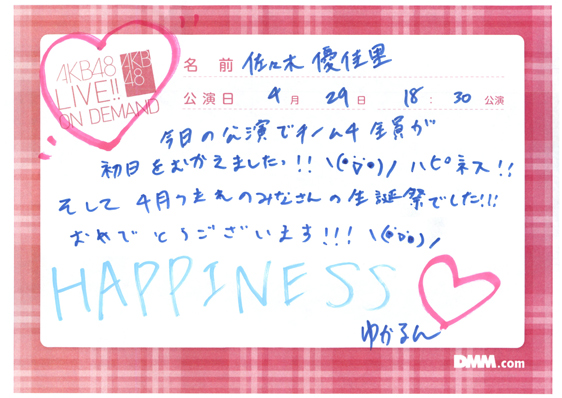 AKB48
LIVE!!
ON DEMAND
AKB
48
名前 佐々木 優佳里
公演日 4月 29日 18:30 公演
今日の公演でチーム4全員が
初日をむかえましたっ!! ヽ(●´▽`●)ノ ハピネス!!
そして4月うまれのみなさんの生誕祭でした!!!
おめでとうございます!!! ヽ(●´▽`●)ノ
HAPPINESS
ゆかるん
DMM.com